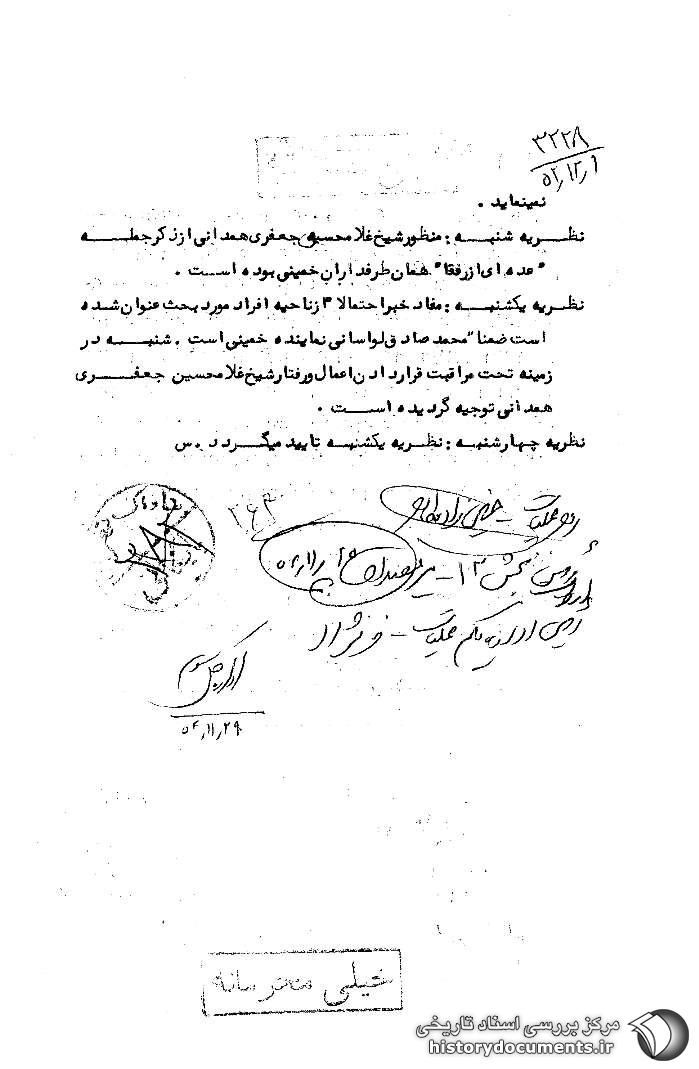 ۳۲۲۸
۵۴/۱۲/۹
نمینماید .
نظریه شنبه : منظور شیخ غلامحسین جعفری همدانی از ذکر جمله
"عده ای از رفقا" همان طرفداران خمینی بوده است .
نظریه یکشنبه : مفاد خبر احتمالا" از ناحیه افراد مورد بحث عنوان شده
است ضمنا" محمد صادق لواسانی نماینده خمینی است . شنبه در
زمینه تحت مراقبت قراردادن اعمال و رفتار شیخ غلامحسین جعفری
همدانی توجیه گردیده است .
نظریه چهارشنبه : نظریه یکشنبه تایید میگردد . س
رهبر عملیات -
رئیس بخش ۱۲ -
رئیس اداره یکم عملیات -
۵۴/۱۱/۲۹
خیلی محرمانه
مرکز بررسی اسناد تاریخی
historydocuments.ir